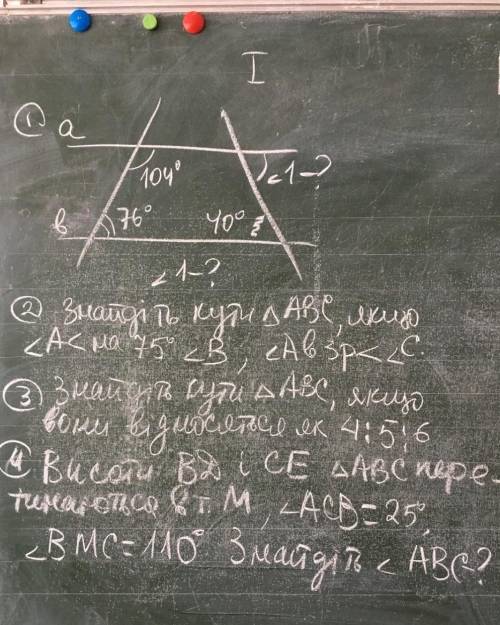 I
① a
104° ∠1-?
в 76° 40°
∠1-?
② Знайдіть кути △ABC, якщо
∠A< на 75° ∠B, ∠A в 3р< ∠C.
③ Знайдіть кути △ABC, якщо
вони відносяться як 4:5:6
④ Висоти BD і CE △ABC пере-
тинаються в т. M, ∠ACB=25°,
∠BMC=110° Знайдіть ∠ABC?